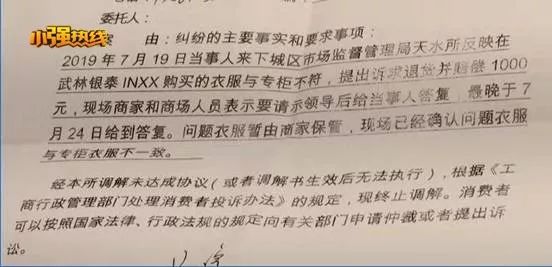 小强热线
委托人：
由：纠纷的主要事实和要求事项：
2019 年 7 月 19 日当事人来下城区市场监督管理局天水所反映在
武林银泰 INXX 购买的衣服与专柜不符，提出诉求退货并赔偿 1000
元，现场商家和商场人员表示要请示领导后给当事人答复，最晚于 7
月 24 日给到答复。问题衣服暂由商家保管，现场已经确认问题衣服
与专柜衣服不一致。
经本所调解未达成协议（或者调解书生效后无法执行），根据《工
商行政管理部门处理消费者投诉办法》的规定，现终止调解。消费者
可以按照国家法律、行政法规的规定向有关部门申请仲裁或者提出诉
讼。